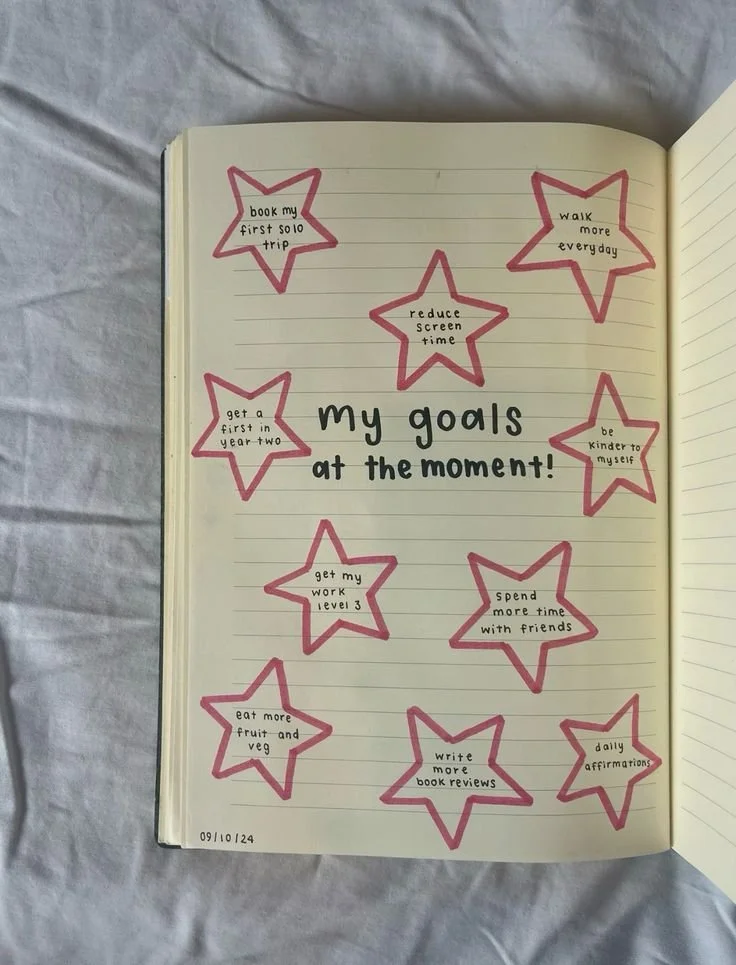 book my
first solo
trip
walk
more
everyday
reduce
screen
time
get a
first in
year two
my goals
at the moment!
be
kinder to
myself
get my
work
level 3
spend
more time
with friends
eat more
fruit and
veg
write
more
book reviews
daily
affirmations
09/10/24